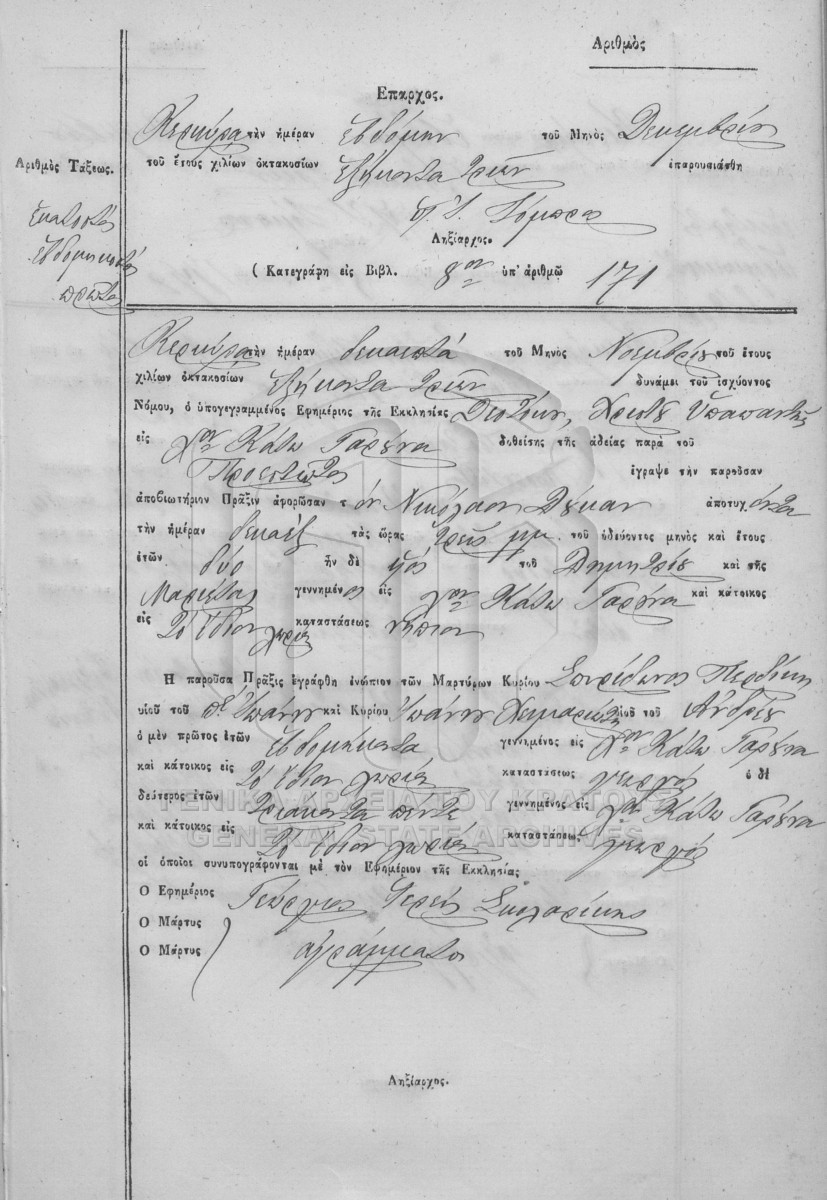 Αριθμὸς
Επαρχος.
Κερκύρα τὴν ἡμέραν ἑβδόμην τοῦ Μηνὸς Δεκεμβρίου
Αριθμὸς Τάξεως.
τοῦ ἔτους χιλίων ὀκτακοσίων ἑξήκοντα τριῶν ἐπαρουσιάσθη
Ἑκατοστὸς
ἑβδομηκοστὸς
πρῶτος
Ληξίαρχος.
( Κατεγράφη εἰς Βιβλ. 8ον ὑπ' ἀριθμῷ 171
Κερκύρα τὴν ἡμέραν δεκαεπτά τοῦ Μηνὸς Νοεμβρίου τοῦ ἔτους
χιλίων ὀκτακοσίων ἑξήκοντα τριῶν δυνάμει τοῦ ἰσχύοντος
Νόμου, ὁ ὑπογεγραμμένος Εφημέριος τῆς Εκκλησίας Δεσπότου Χριστοῦ Ὑπαπαντῆς
εἰς χον Κάτω Γαρούνα δοθείσης τῆς ἀδείας παρὰ τοῦ
Προεστῶτος ἔγραψε τὴν παροῦσαν
ἀποβιωτήριον Πρᾶξιν ἀφορῶσαν τ όν Νικόλαον Δούκαν ἀποτυχ όντα
τὴν ἡμέραν δεκαέξ τὰς ὥρας τρεῖς μμ. τοῦ ὁδεύοντος μηνὸς καὶ ἔτους
ἐτῶν δύο ἦν δὲ υἱός τοῦ Δημητρίου καὶ τῆς
Μαριέτας γεννημένος εἰς χον Κάτω Γαρούνα καὶ κάτοικος
εἰς Τὸ ἴδιον χωρίον καταστάσεως νήπιον
Η παροῦσα Πρᾶξις ἐγράφθη ἐνώπιον τῶν Μαρτύρων Κυρίου Σπυρίδωνος Περδίκη
υἱοῦ τοῦ π. Ἰωάννου καὶ Κυρίου Ἰωάννου Χειμαριώτη υἱοῦ τοῦ Ἀνδρέου
ὁ μὲν πρῶτος ἐτῶν ἑβδομήκοντα γεννημένος εἰς χον Κάτω Γαρούνα
καὶ κάτοικος εἰς Τὸ ἴδιον χωρίον καταστάσεως γεωργός ὁ δὲ
δεύτερος ἐτῶν τριάκοντα πέντε γεννημένος εἰς χον Κάτω Γαρούνα
καὶ κάτοικος εἰς Τὸ ἴδιον χωρίον καταστάσεως γεωργός
οἱ ὁποῖοι συνυπογράφονται μὲ τὸν Εφημέριον τῆς Εκκλησίας
Ο Εφημέριος Γεώργιος Ἱερεὺς
Ο Μάρτυς
Ο Μάρτυς ἀγράμματοι
Ληξίαρχος.
ΓΕΝΙΚΑ ΑΡΧΕΙΑ ΤΟΥ ΚΡΑΤΟΥΣ
GENERAL STATE ARCHIVES